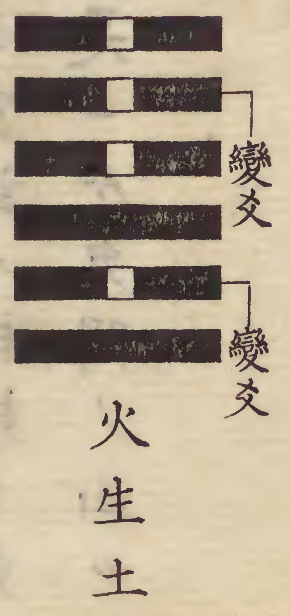 變爻
變爻
火生土